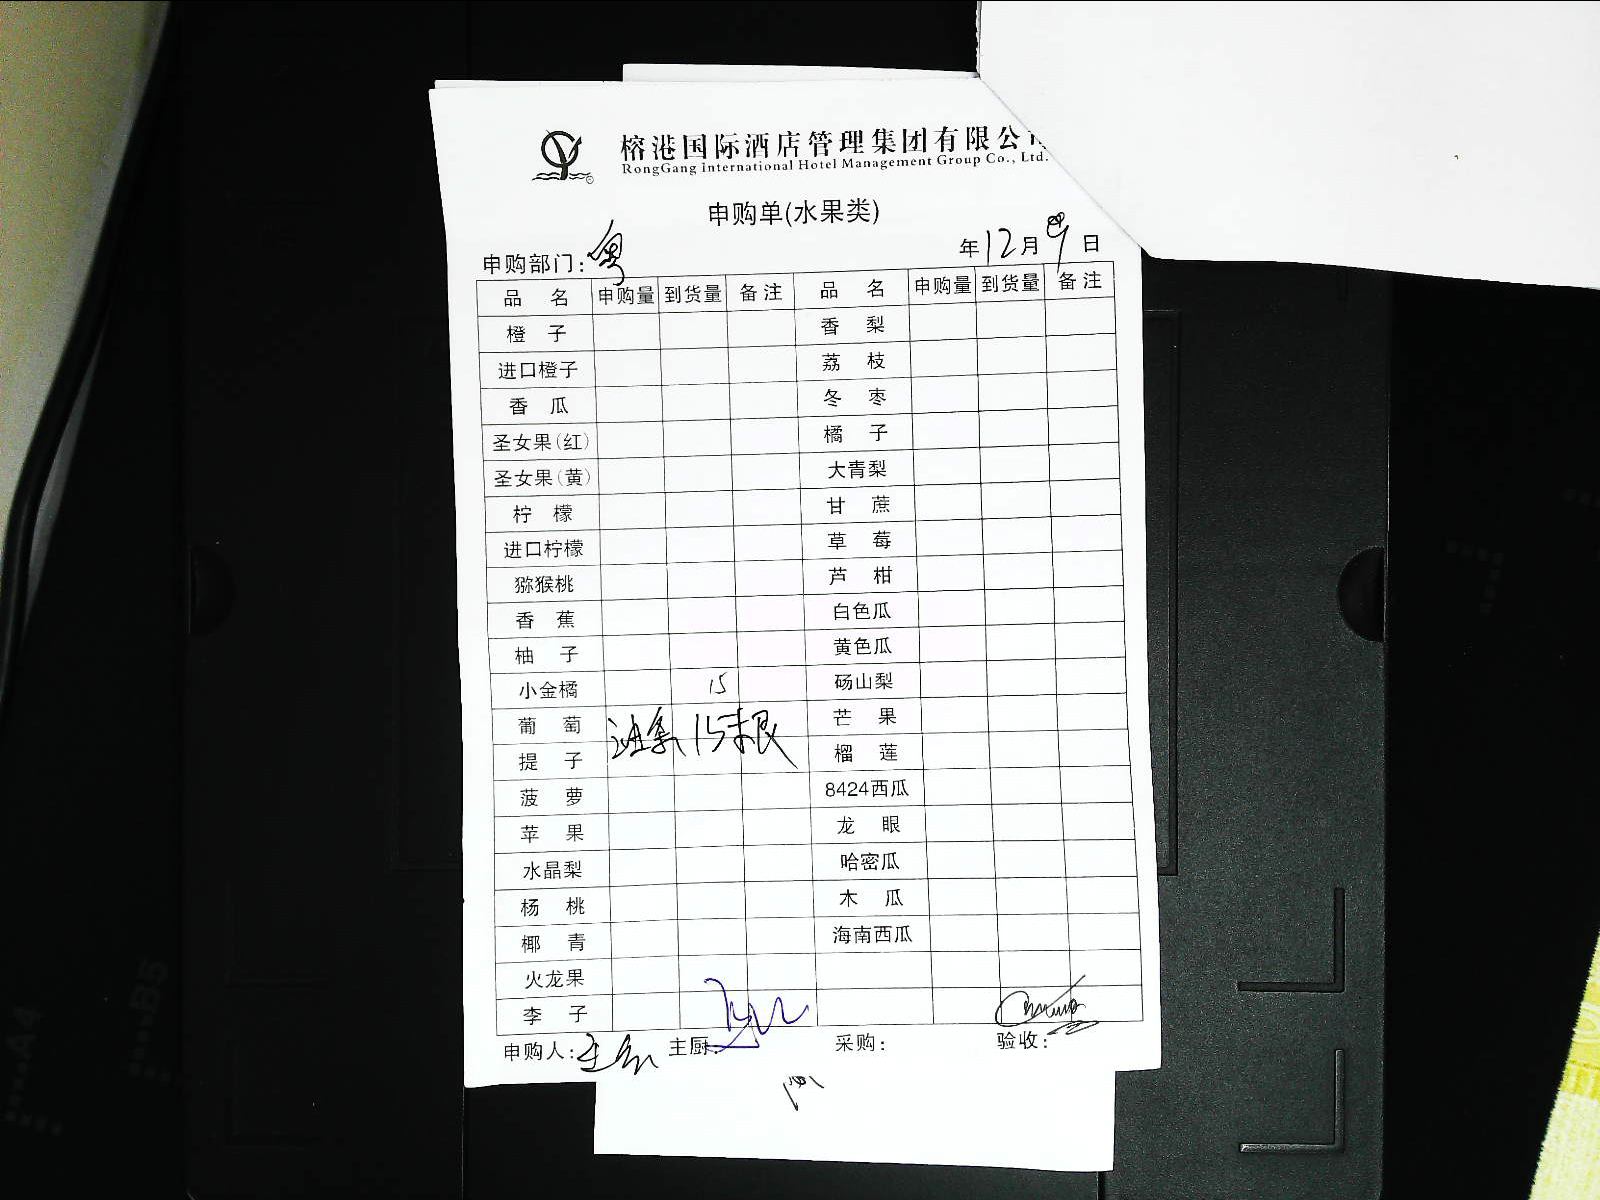 榕港国际酒店管理集团有限公
RongGang International Hotel Management Group Co., Ltd.
申购单(水果类)
申购部门：粤 年12月9日
品名 申购量 到货量 备注 品名 申购量 到货量 备注
橙子 香梨
进口橙子 荔枝
香瓜 冬枣
圣女果(红) 橘子
圣女果(黄) 大青梨
柠檬 甘蔗
进口柠檬 草莓
猕猴桃 芦柑
香蕉 白色瓜
柚子 黄色瓜
小金橘 15 砀山梨
葡萄 油条 15 根 芒果
提子 榴莲
菠萝 8424西瓜
苹果 龙眼
水晶梨 哈密瓜
杨桃 木瓜
椰青 海南西瓜
火龙果
李子
申购人: 主厨: 采购: 验收:
A4
B5